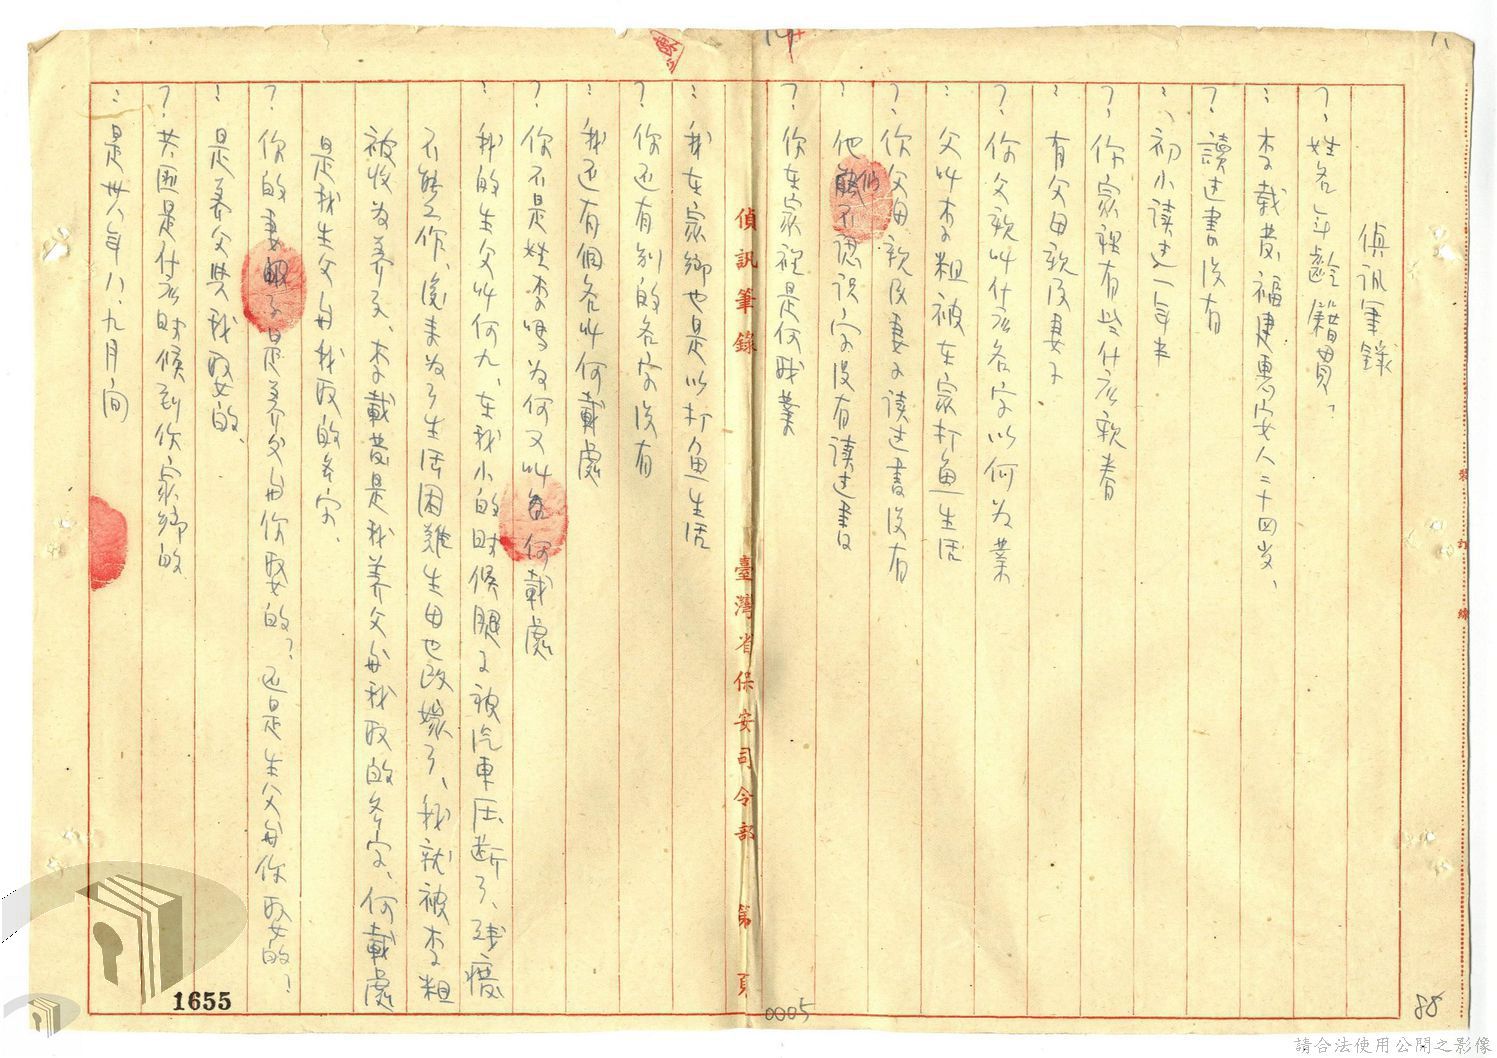 偵訊筆錄
？姓名年齡籍貫？
：李載發、福建惠安人二十四岁、
？讀过書没有
：初小读过一年半
？你家裡有些什広親眷
：有父母親及妻子
？你父親叫什広名字以何为業
：父叫李粗被在家打魚生活
？你父母親及妻子读过書没有
：他们不認识字没有读过書
？你在家裡是何职業
：我在家鄉也是以打魚生活
？你还有别的名字没有
：我还有個名叫何載處
？你不是姓李吗为何又叫何載處
：我的生父叫何九、在我小的时候腿子被汽車压断了、残癈
不能工作、後来为了生活困难生母也改嫁了、我就被李粗
被收为养子、李載發是我养父母我取的名字、何載處
是我生父母我取的名字、
？你的妻子是养父母你娶的？还是生父母你取女的？
：是养父與我娶的、
？共匪是什広时候到你家鄉的
：是卅八年八、九月间
偵訊筆錄 臺灣省保安司令部 第 頁
裝 訂 線
1655
0005
88
請合法使用公開之影像